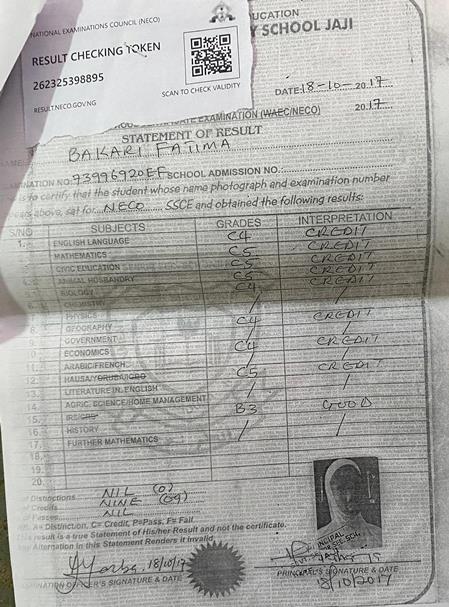 NATIONAL EXAMINATIONS COUNCIL (NECO)
RESULT CHECKING TOKEN
262325398895
RESULT.NECO.GOV.NG
SCAN TO CHECK VALIDITY
UCATION
Y SCHOOL JAJI
DATE: 18-10- 2017
CATE EXAMINATION (WAEC/NECO) 2017
STATEMENT OF RESULT
BAKARI FATIMA
AMINATION NO: 73996920EF SCHOOL ADMISSION NO:
is to certify that the student whose name photograph and examination number
ears above, sat for NECO SSCE and obtained the following results:
S/NO SUBJECTS GRADES INTERPRETATION
1. ENGLISH LANGUAGE C4 CREDIT
MATHEMATICS C5 CREDIT
CIVIC EDUCATION C5 CREDIT
ANIMAL HUSBANDRY C5 CREDIT
BIOLOGY C4 CREDIT
CHEMISTRY /
PHYSICS / /
8. GEOGRAPHY C4 CREDIT
9. GOVERNMENT / /
10. ECONOMICS C4 CREDIT
11. ARABIC/FRENCH / /
12. HAUSA/YORUBA/IGBO C5 CREDIT
13. LITERATURE IN ENGLISH / /
14. AGRIC. SCIENCE/HOME MANAGEMENT B3 GOOD
15.
16. HISTORY / /
17. FURTHER MATHEMATICS
18.
19.
20.
of Distinctions NIL (0)
of Credits NINE (09)
of Passes NIL
A= Distinction, C= Credit, P=Pass, F= Fail
This result is a true Statement of His/her Result and not the certificate.
Any Alteration in this Statement Renders it invalid
18/10/17
INATION OFFICER'S SIGNATURE & DATE
PRINCIPAL'S SIGNATURE & DATE
18/10/2017